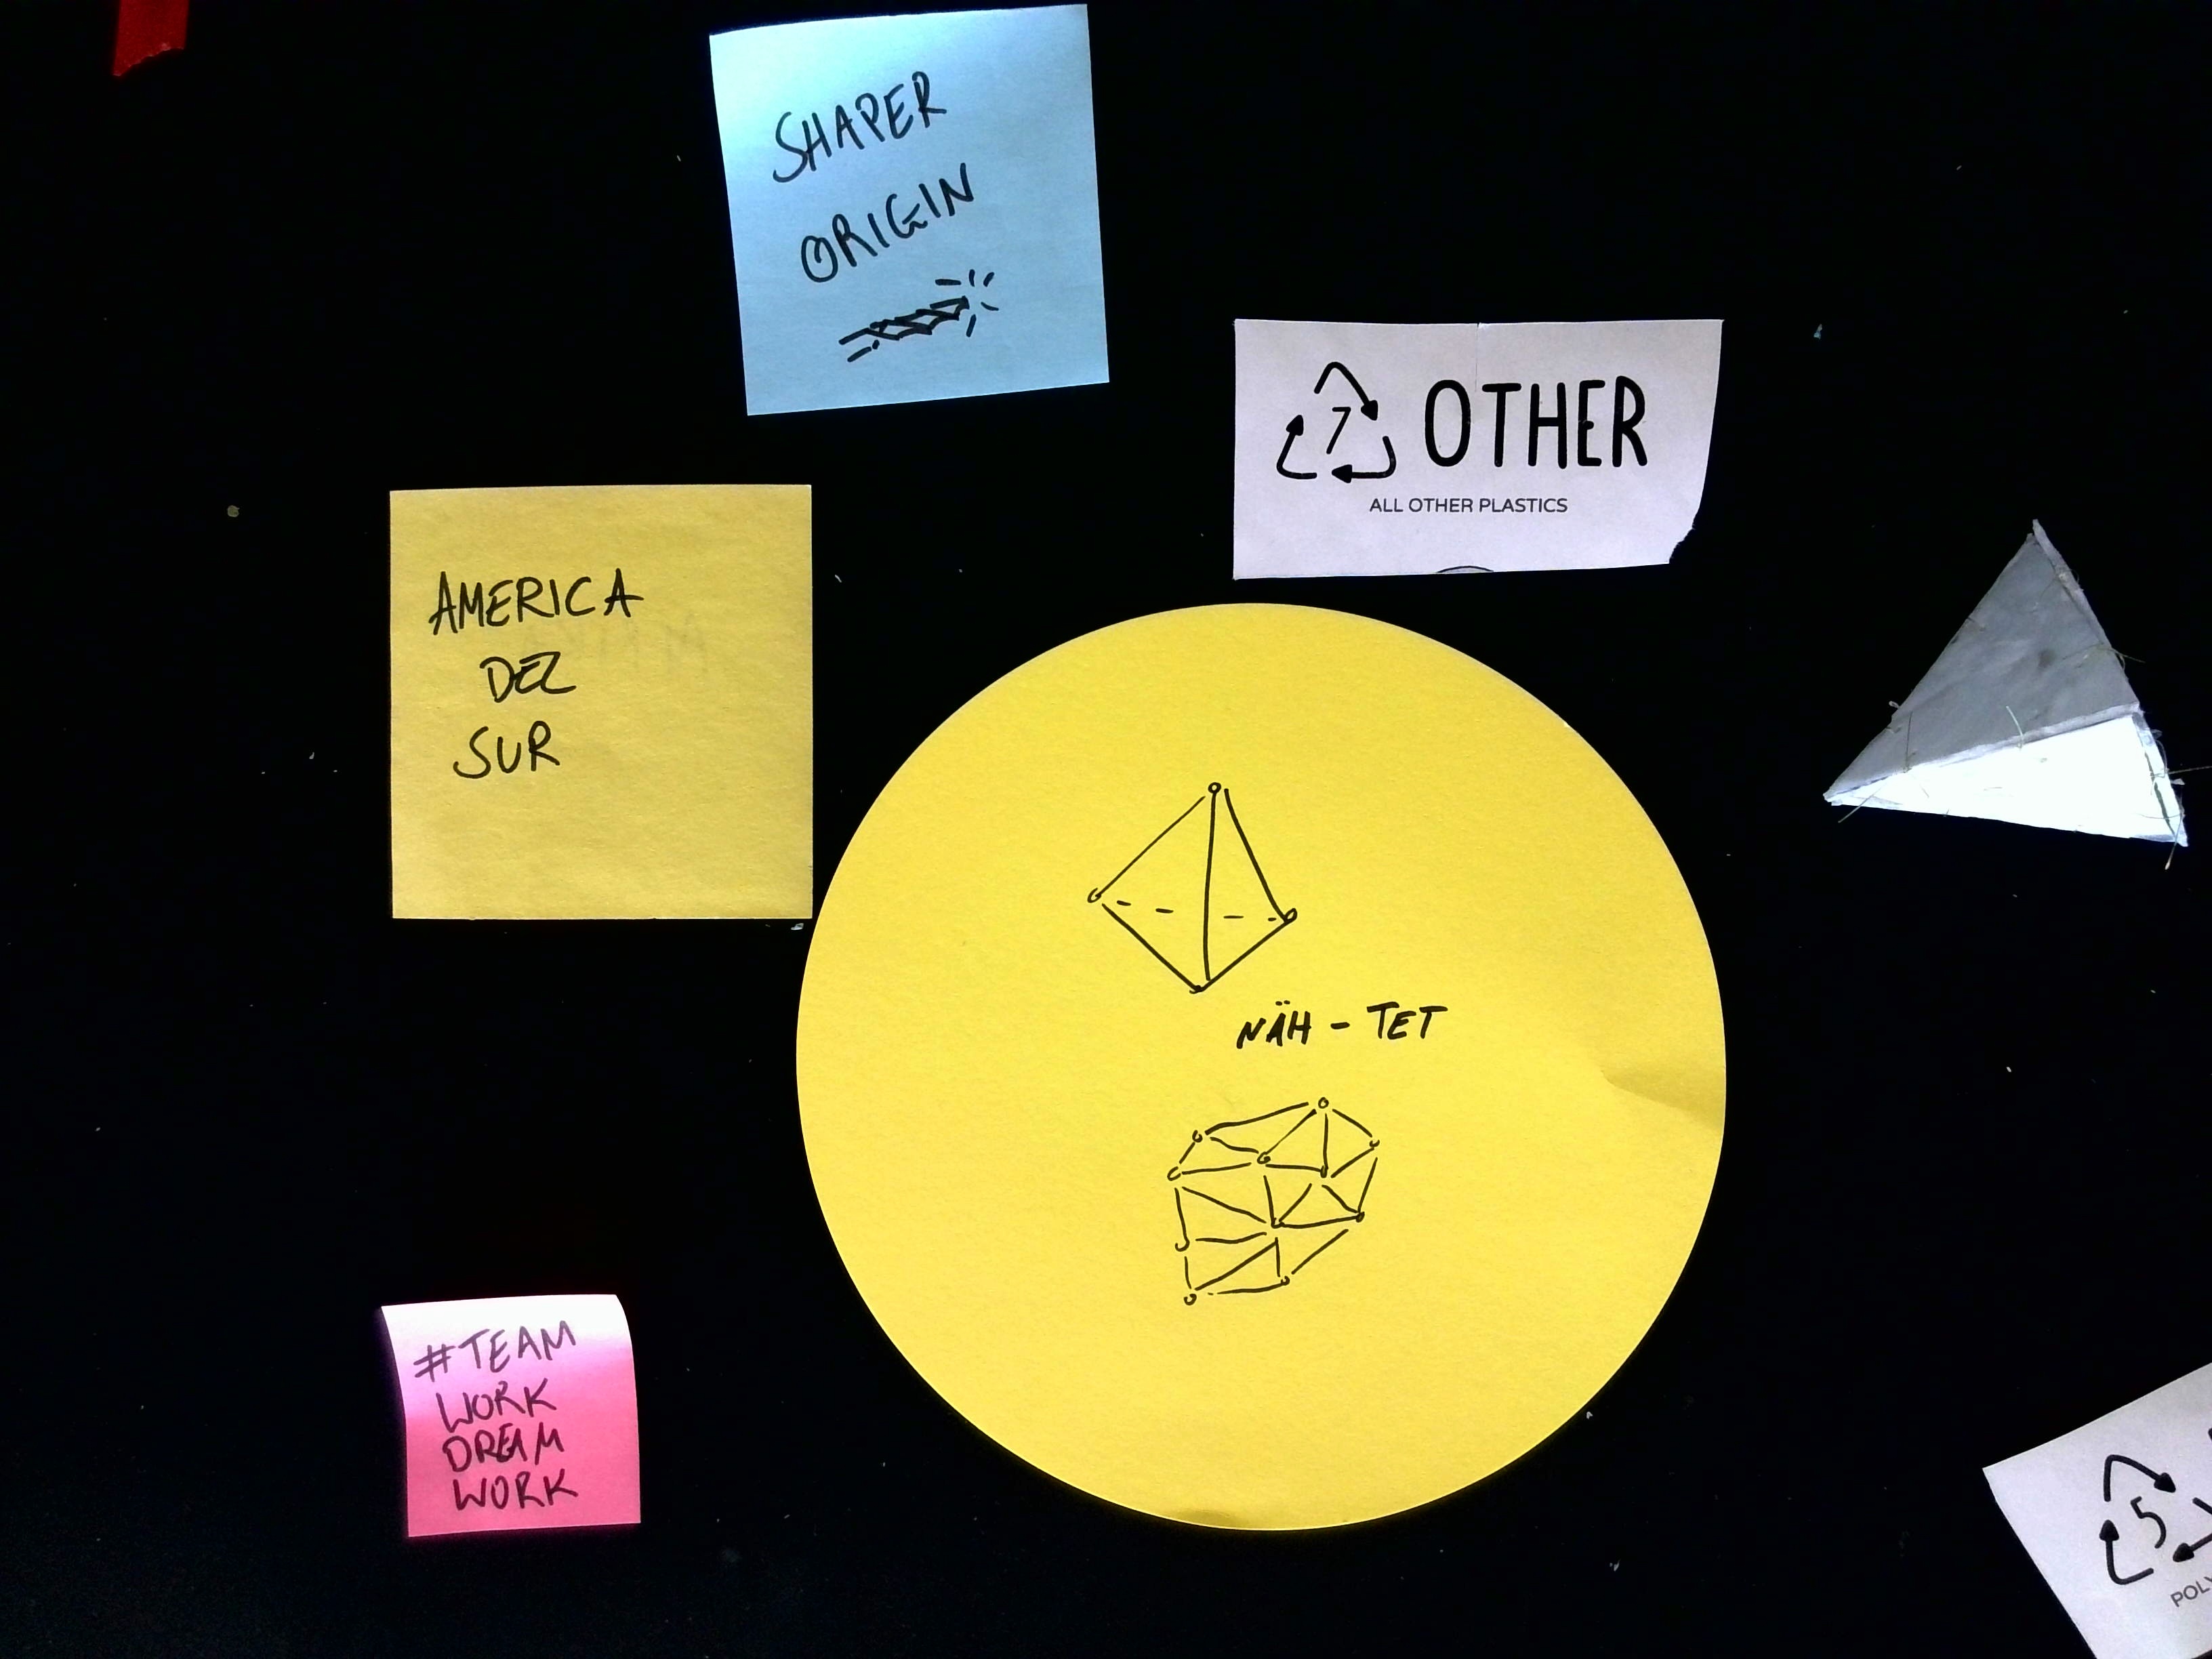 SHAPER
ORIGIN
7 OTHER
ALL OTHER PLASTICS
AMERICA
DEL
SUR
NÄH - TET
#TEAM
WORK
DREAM
WORK
5
POLY